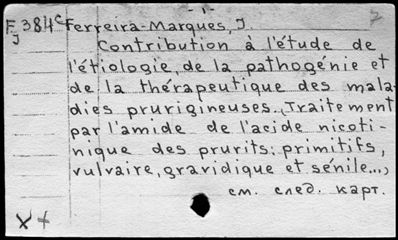 - 1 -
F 384 c Ferreira-Marques, J.
J
Contribution à l'étude de
l'étiologie, de la pathogénie et
de la thérapeutique des mala-
dies prurigineuses. Traitement
par l'amide de l'acide nicoti-
nique des prurits: primitifs,
vulvaire, gravidique et sénile...,
см. след. карт.
X +